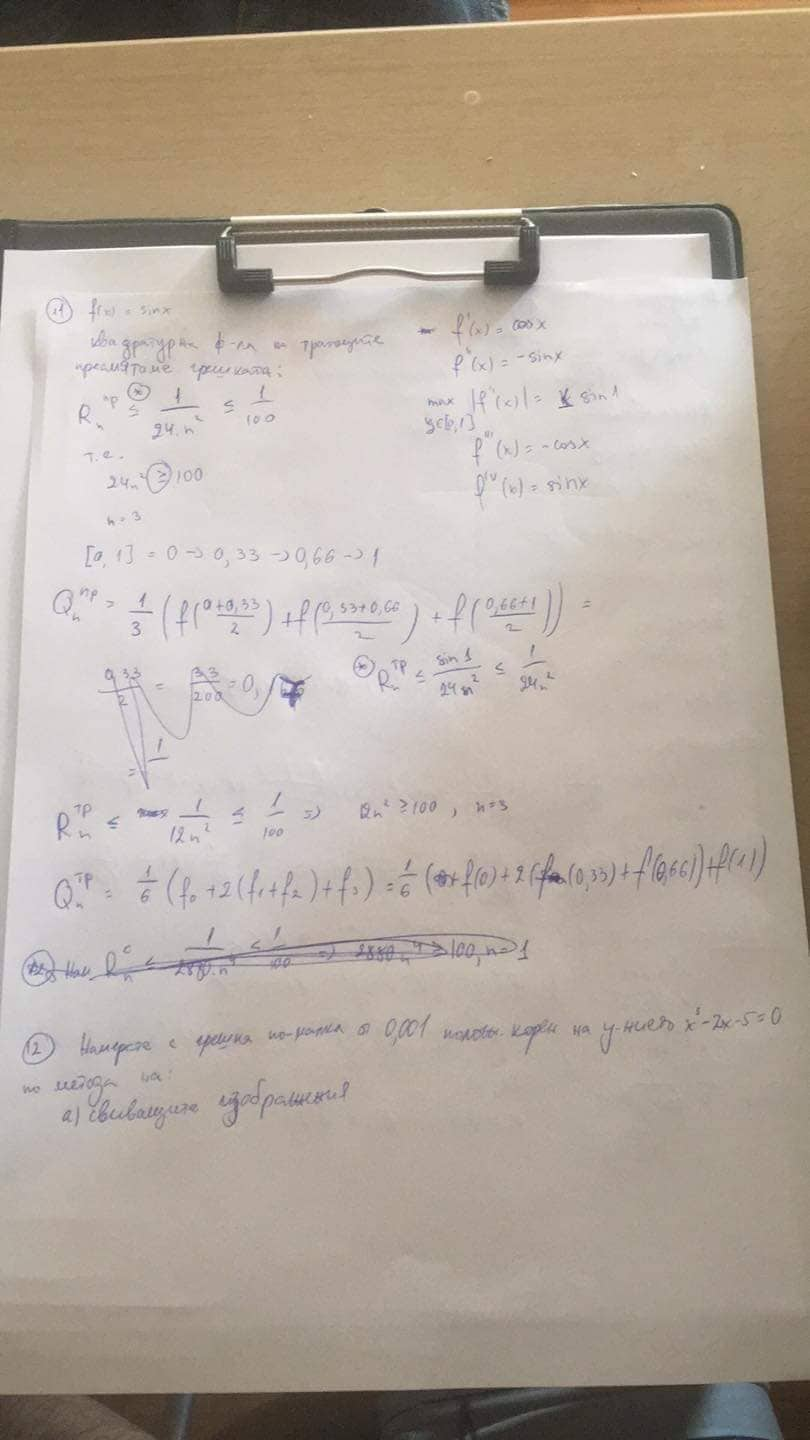 11 f(x) = sinx
квадратурна ф-ла на трапеците
пресмятаме грешката:
f'(x) = cosx
f''(x) = -sinx
max |f''(x)| = sin1
[0,1]
f'''(x) = -cosx
f^IV(x) = sinx
R_n^пр ≤ 1/(24.n²) ≤ 1/100
т.е.
24n² ≥ 100
n = 3
[0, 1] = 0 → 0,33 → 0,66 → 1
Q_n^пр = 1/3 (f((0+0,33)/2) + f((0,33+0,66)/2) + f((0,66+1)/2)) =
0,33/2 = 33/200 = 0,
(*) R_n^тр ≤ sin1/(24n²) ≤ 1/(24n²)
R_n^тр ≤ 1/(12n²) ≤ 1/100 => 12n² ≥ 100, n=3
Q_n^тр = 1/6 (f₀ + 2(f₁+f₂) + f₃) = 1/6 (f(0) + 2(f(0,33) + f(0,66)) + f(1))
R_n^c ≤ 1/(2880.n⁴) ≤ 1/100 => 2880n⁴ ≥ 100, n=1
12 Намерете с грешка по-малка от 0,001 полож. корен на у-нието x³-2x-5=0
по метода на:
а) свиващите изображения